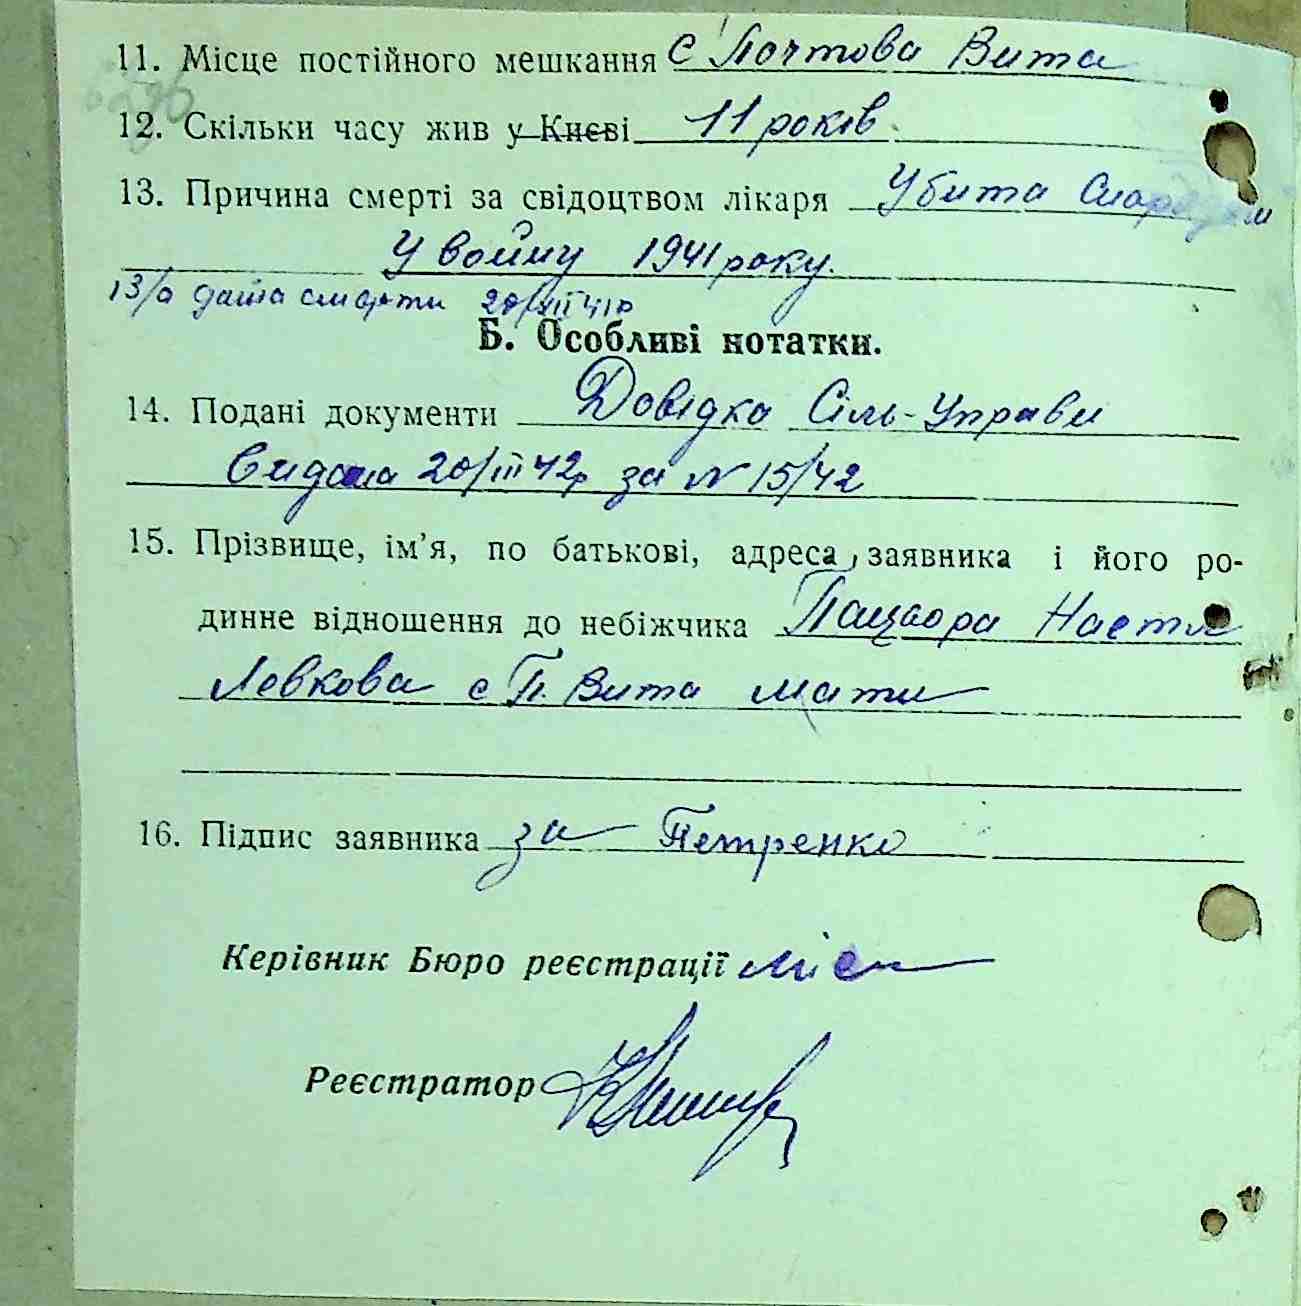 11. Місце постійного мешкання с Почтова Вита
12. Скільки часу жив у Києві 11 років
13. Причина смерті за свідоцтвом лікаря Убита Снарядом
У войну 1941 року.
13/а дата смерти 20/VIII 41р
Б. Особливі нотатки.
14. Подані документи Довідка Сіль-Управи
Видана 20/III 42р за N 15/42
15. Прізвище, ім'я, по батькові, адреса, заявника і його ро-
динне відношення до небіжчика Пацаора Настя
Левкова с П. Вита мати
16. Підпис заявника за Петренко
Керівник Бюро реєстрації
Реєстратор